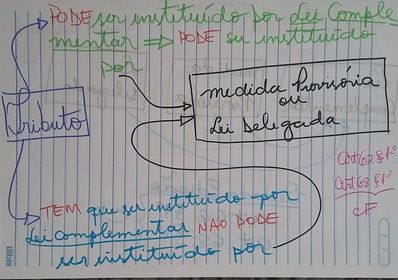 PODE ser instituído por Lei Comple
mentar => PODE ser instituído
por
medida Provisória
ou
Lei Delegada
Tributo
Art 62 § 1º
Art 68 § 1º
CF
TEM que ser instituído por
Lei Complementar NÃO PODE
ser instituído por
tilibra